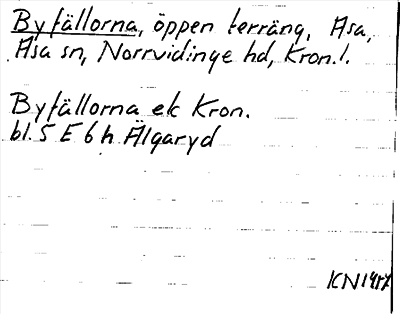 Byfällorna, öppen terräng, Asa,
Asa sn, Norrvidinge hd, Kron. l.
Byfällorna ek Kron.
bl. 5 E 6 h Älgaryd
KN 1957